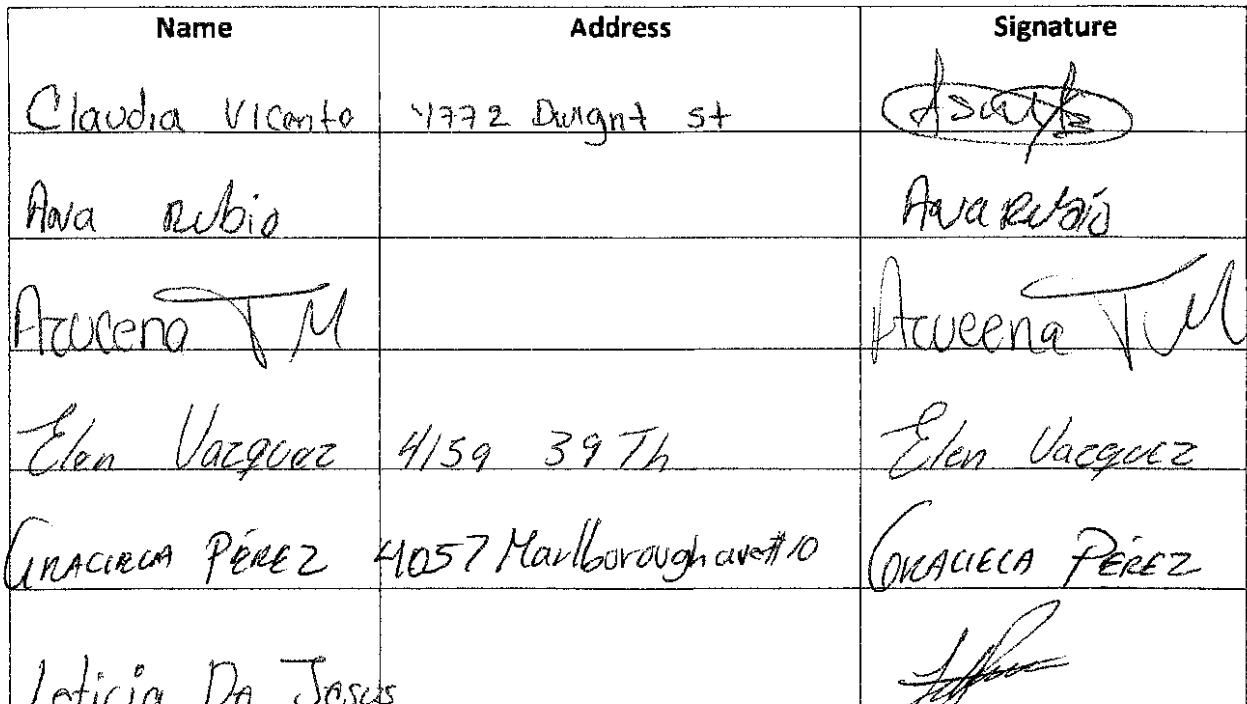 Name Address Signature
Claudia Vicento 4772 Dwignt st
Ana Rubio Ana Rubio
Azucena T M Azucena T M
Elen Vazquez 4159 39 Th Elen Vazquez
GRACIELA PÉREZ 4057 Marlborough ave #10 GRACIELA PÉREZ
Leticia De Jesus